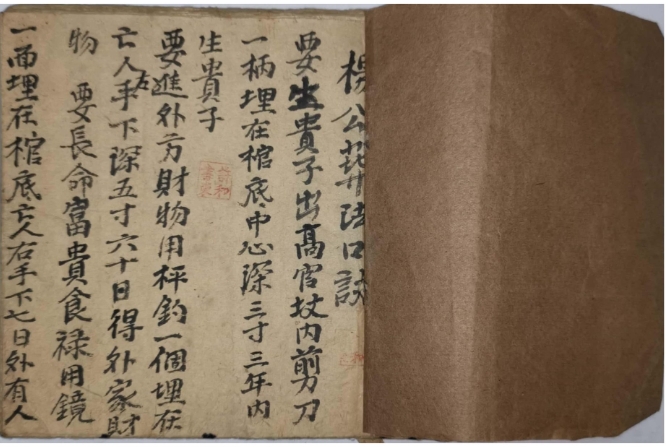 楊公葬法口訣
要生貴子出高官坟內剪刀
一柄埋在棺底中心深三寸三年內
生貴子
要進外方財物用枰鈎一個埋在
亡人手左下深五寸六十日得外家財
物　要長命富貴食祿用鏡
一面埋在棺底亡人右手下七日外有人